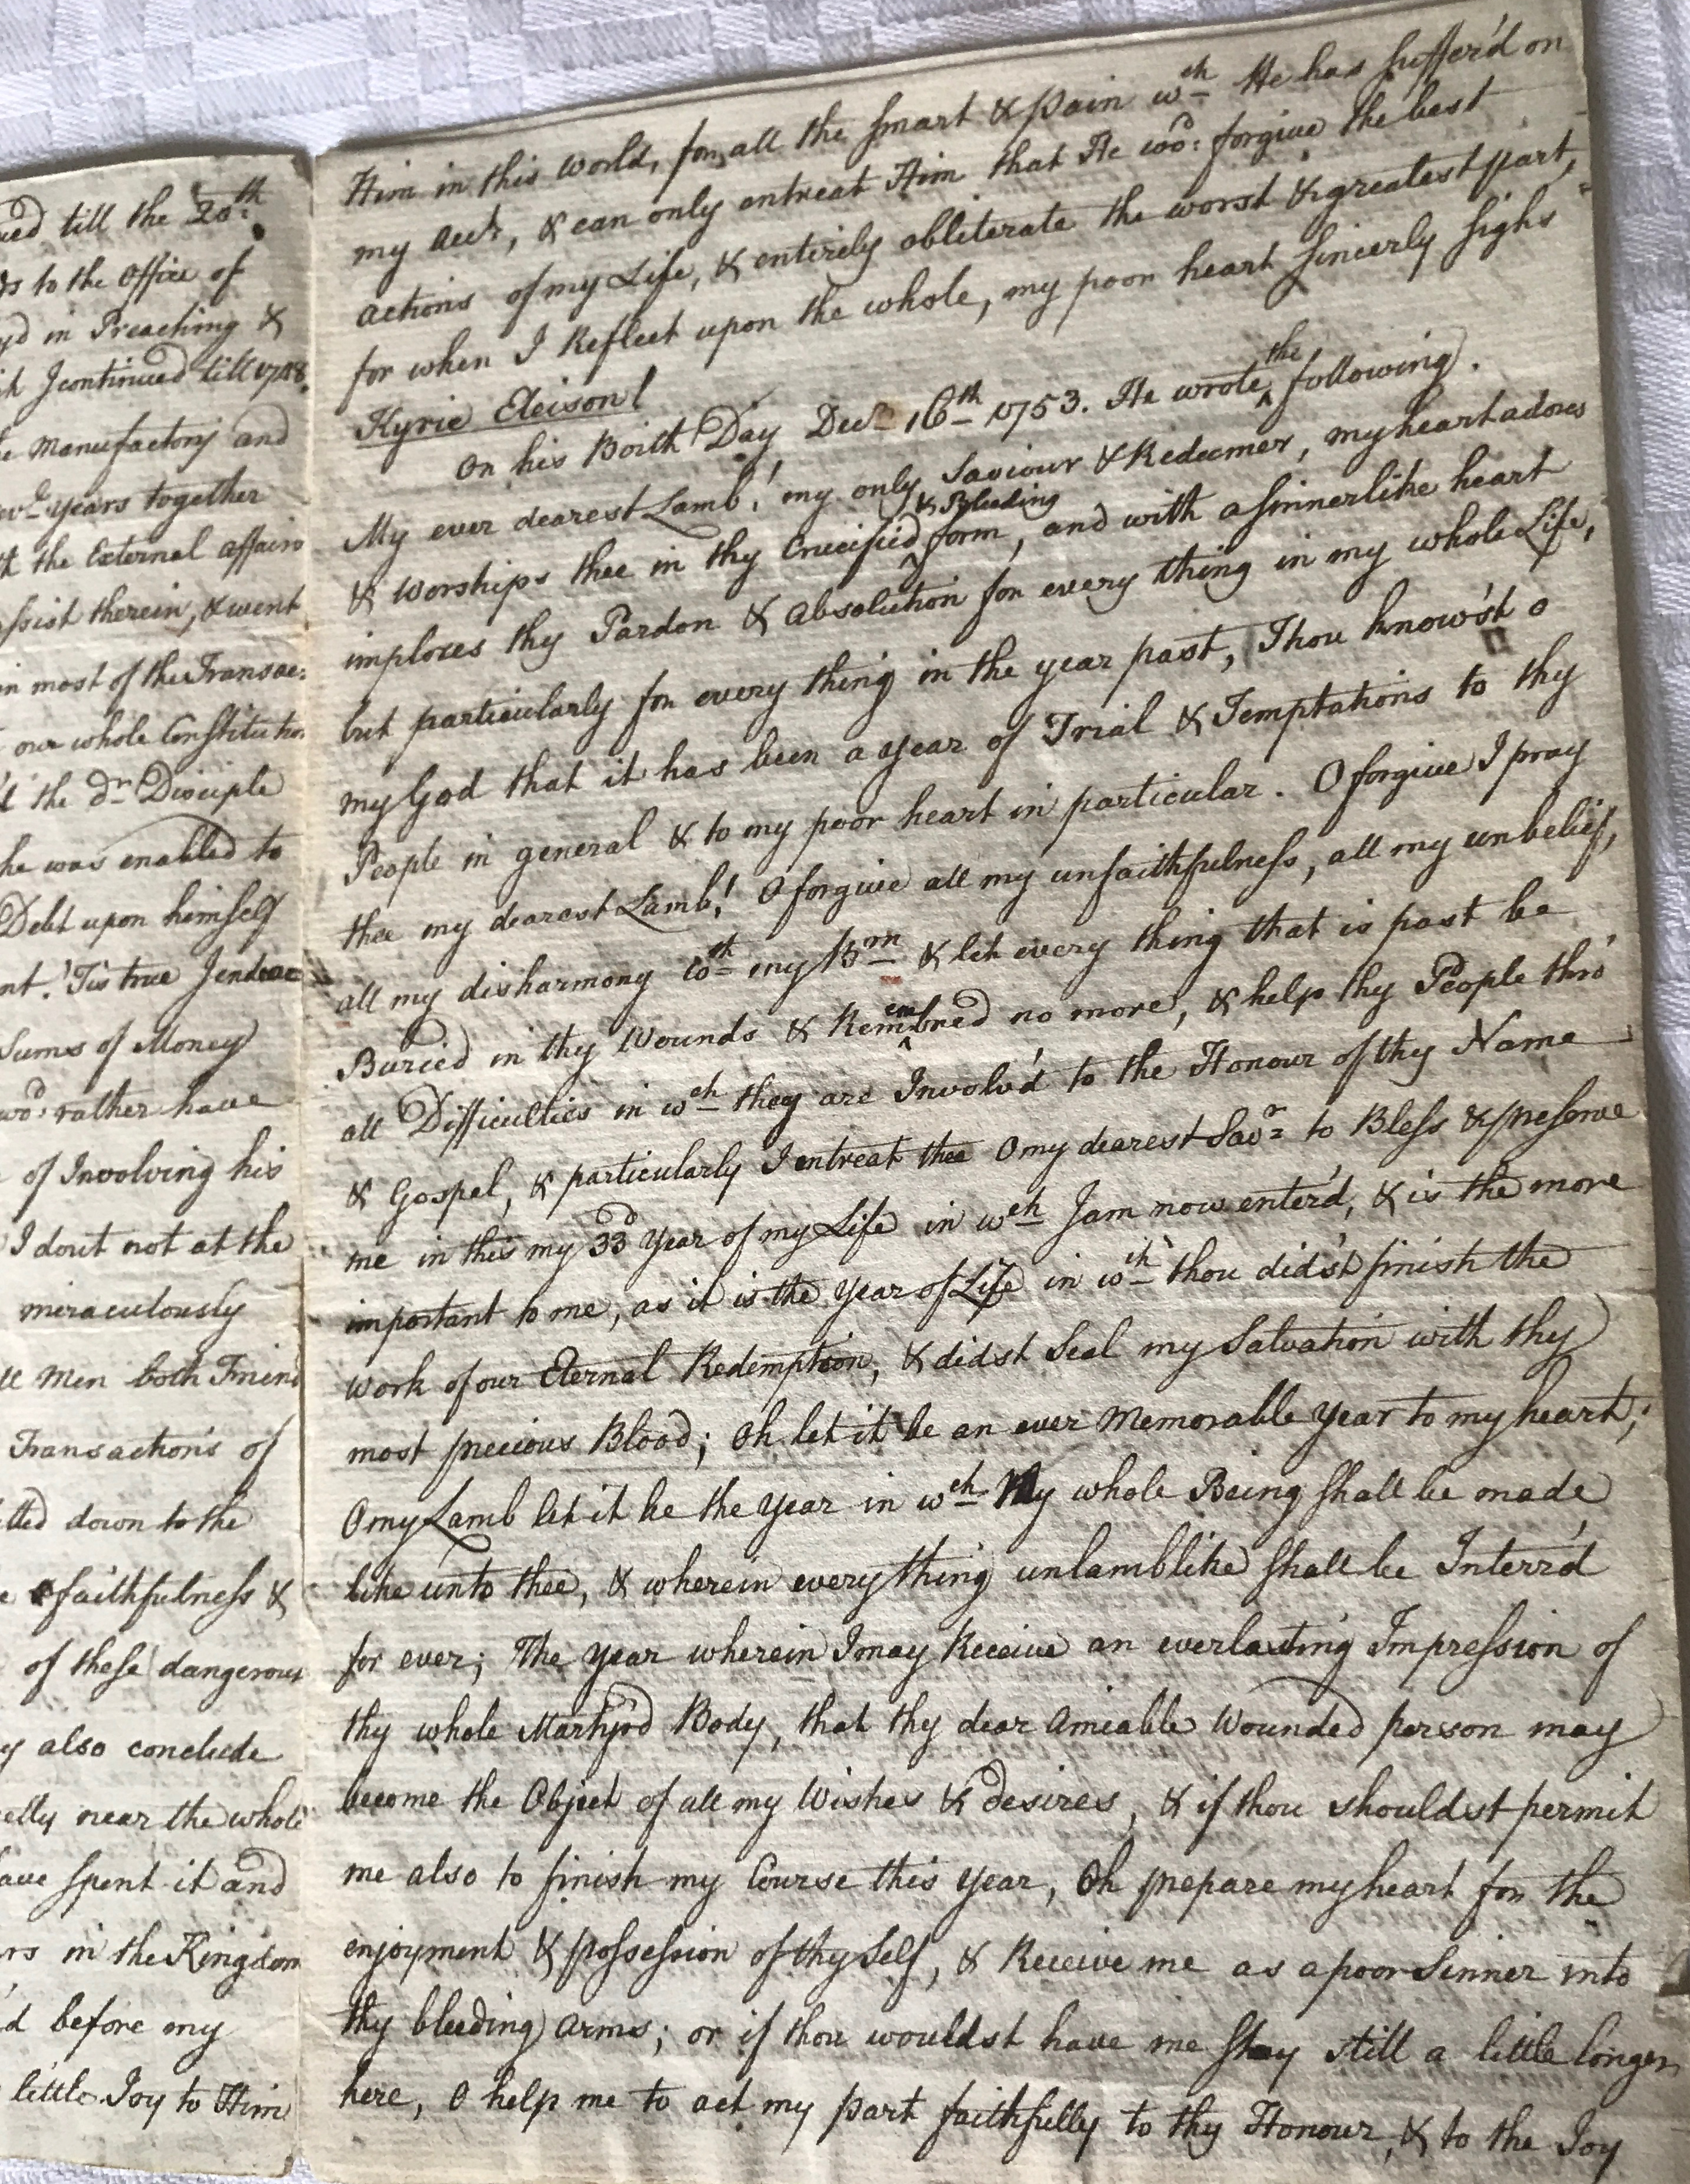 till the 20th
to the Office of
in Preaching &
I continued till 1748.
Manufactory and
years together
the External affairs
therein, & went
in most of the Transac:
our whole Constitution
the dr Disciple
he was enabled to
Debt upon himself
'Tis true I
Sums of Money
wod: rather have
of Involving his
I dont not at the
miraculously
Men both Friend
Transactions of
down to the
faithfulness &
of these dangerous
also conclude
near the whole
spent it and
in the Kingdom
before my
little Joy to Him
Him in this World, for all the smart & Pain wch He has suffer'd on
my acct, & can only entreat Him that He wod: forgive the best
actions of my Life, & entirely obliterate the worst & greatest part,
for when I Reflect upon the whole, my poor heart sincerly sighs
Kyrie Eleison!
On his Birth Day, Decr 16th 1753. He wrote the following.
My ever dearest Lamb! my only Saviour & Redeemer, my heart adores
& Worships thee in thy Crucified & Bleeding form, and with a sinnerlike heart
implores thy Pardon & Absolution for every thing in my whole Life,
but particularly for every thing in the year past, Thou know'st o
my God that it has been a year of Trial & Temptations to thy
People in general & to my poor heart in particular. O forgive I pray
thee my dearest Lamb! O forgive all my unfaithfulness, all my unbelief,
all my disharmony wth my Brn & let every thing that is past be
Buried in thy Wounds & no more, & help thy People thro'
all Difficulties in wch they are Involv'd to the Honour of thy Name
& Gospel, & particularly I entreat thee O my dearest Savr to Bless & preserve
me in this my 33d year of my Life in wch I am now enter'd, & is the more
important to me, as it is the year of Life in wch thou did'st finish the
work of our Eternal Redemption, & didst Seal my Salvation with thy
most precious Blood; Oh let it be an ever Memorable year to my heart;
O my Lamb let it be the year in wch My whole Being shall be made
like unto thee, & wherein every thing unlamblike shall be Interr'd
for ever; The year wherein I may Receive an everlasting Impression of
thy whole Martyr'd Body, that thy dear Amiable Wounded person may
become the Object of all my Wishes & desires, & if thou shouldst permit
me also to finish my Course this year, Oh prepare my heart for the
enjoyment & possession of thy Self, & Receive me as a poor Sinner into
thy bleeding Arms; or if thou wouldst have me stay still a little longer
here, O help me to act my part faithfully to thy Honour, & to the Joy